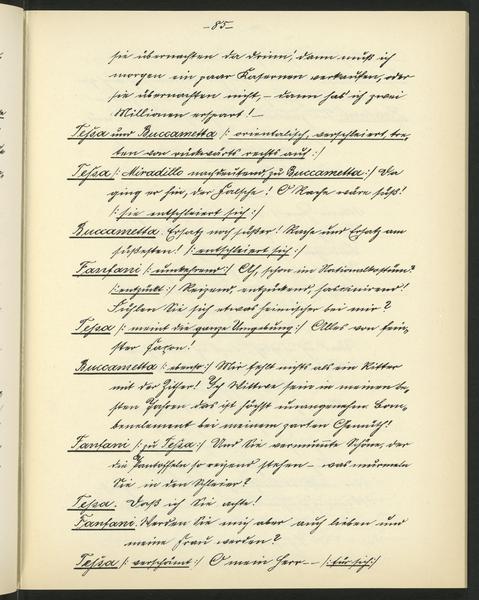 -85-
sie übernachten da drinn', dann muß ich
morgen ein paar Kasernen verkaufen, oder
sie übernachten nicht, - dann hab ich zwei
Millionen erspart! -
Tessa und Buccametta /: orientalisch, verschleiert, tre-
ten von rückwärts rechts auf :/
Tessa /: Miradillo nachdeutend, zu Buccametta :/ Da
ging er hin, der Falsche! O Rache wäre süß!
/: sie entschleiert sich :/
Buccametta. Ersatz noch süßer! Rache und Ersatz am
süßesten! /: entschleiert sich :/
Fanfani /: umkehrend :/ Ah, schon im Nationalkostüm?
/: entzückt :/ Reizend, entzückend, fascinirend!
Fühlen Sie sich etwas heimischer bei mir?
Tessa /: meint die ganze Umgebung :/ Alles von fein-
ster Façon!
Buccametta /: ebenso :/ Mir fehlt nichts als ein Ritter
mit der Zither! Ich Wittwe sein in meinen be-
sten Jahren das ist höchst unangenehm
bei meinem zarten Gemüth!
Fanfani /: zu Tessa :/ Und Sie vermummte Schöne, der
die Pantoffeln so reizend stehen - was murmeln
Sie in den Schleier?
Tessa. Daß ich Sie achte!
Fanfani. Werden Sie mich aber auch lieben und
meine Frau werden?
Tessa /: verschämt :/ O mein Herr -- /: für sich :/